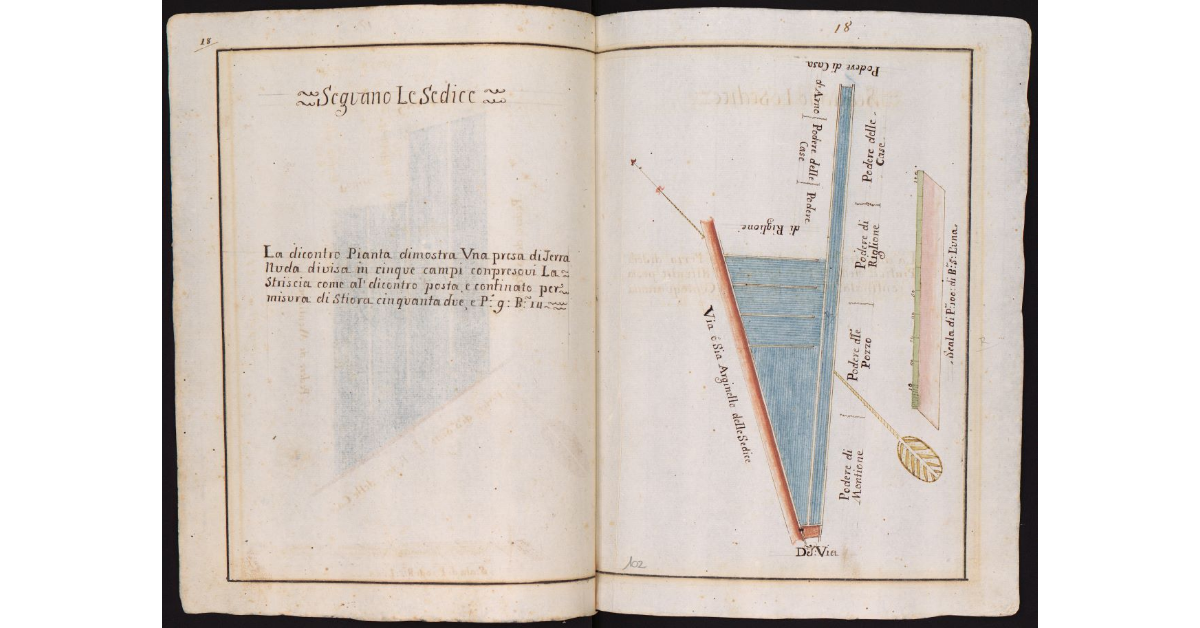 18
Segvano Le Sedice
La dicontro Pianta dimostra Vna presa di Terra
Nuda divisa in cinque campi conpresovi La
Striscia come al' dicontro posta, e confinato per
misura di Stiora cinquanta due, e P.e 9: B.e 14
18
Podere di Casa
d'Arno
Podere delle
Case
Podere
di Riglione
Podere delle
Case
Podere di
Riglione
Podere dlle
Pozzo
Podere di
Montione
Via ó Sia Arginello delle Sedice
Dª: Via
Scala di P: 100: di B: S: l'una
102